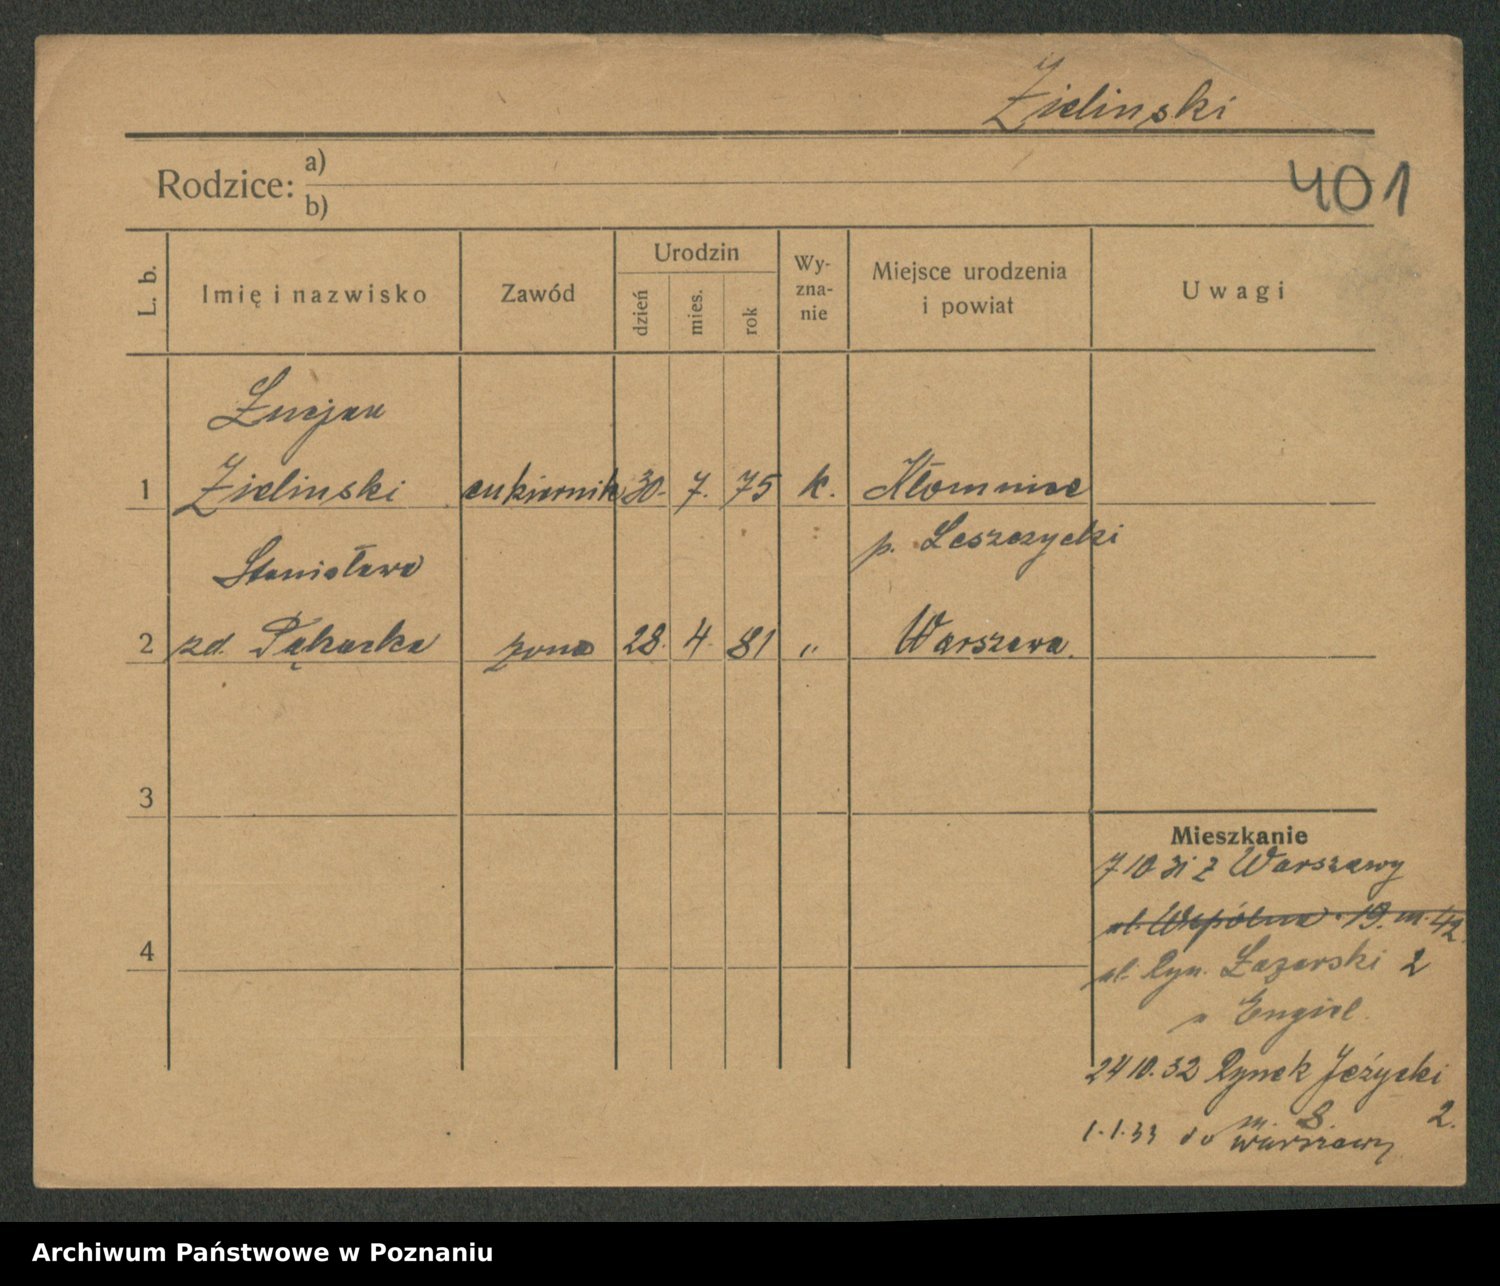 Zielinski
401
Rodzice: a)
b)
L. b.
Imię i nazwisko
Zawód
Urodzin
dzień
mies.
rok
Wy-
zna-
nie
Miejsce urodzenia
i powiat
Uwagi
Lucjan
1 Zielinski cukiernik 30. 7. 75 k. Kłomnice
p. Leszczycki
Stanisława
2 zd. żona 28. 4. 81 " Warszawa.
3
4
Mieszkanie
7 10 31 z Warszawy
ul. Wspólna 19. m. 42
ul. Ryn. Łazarski 2
u Engiel.
24 10. 32 Rynek Jeżycki
2.
m. 8.
1.1.33 do Warszawy
Archiwum Państwowe w Poznaniu